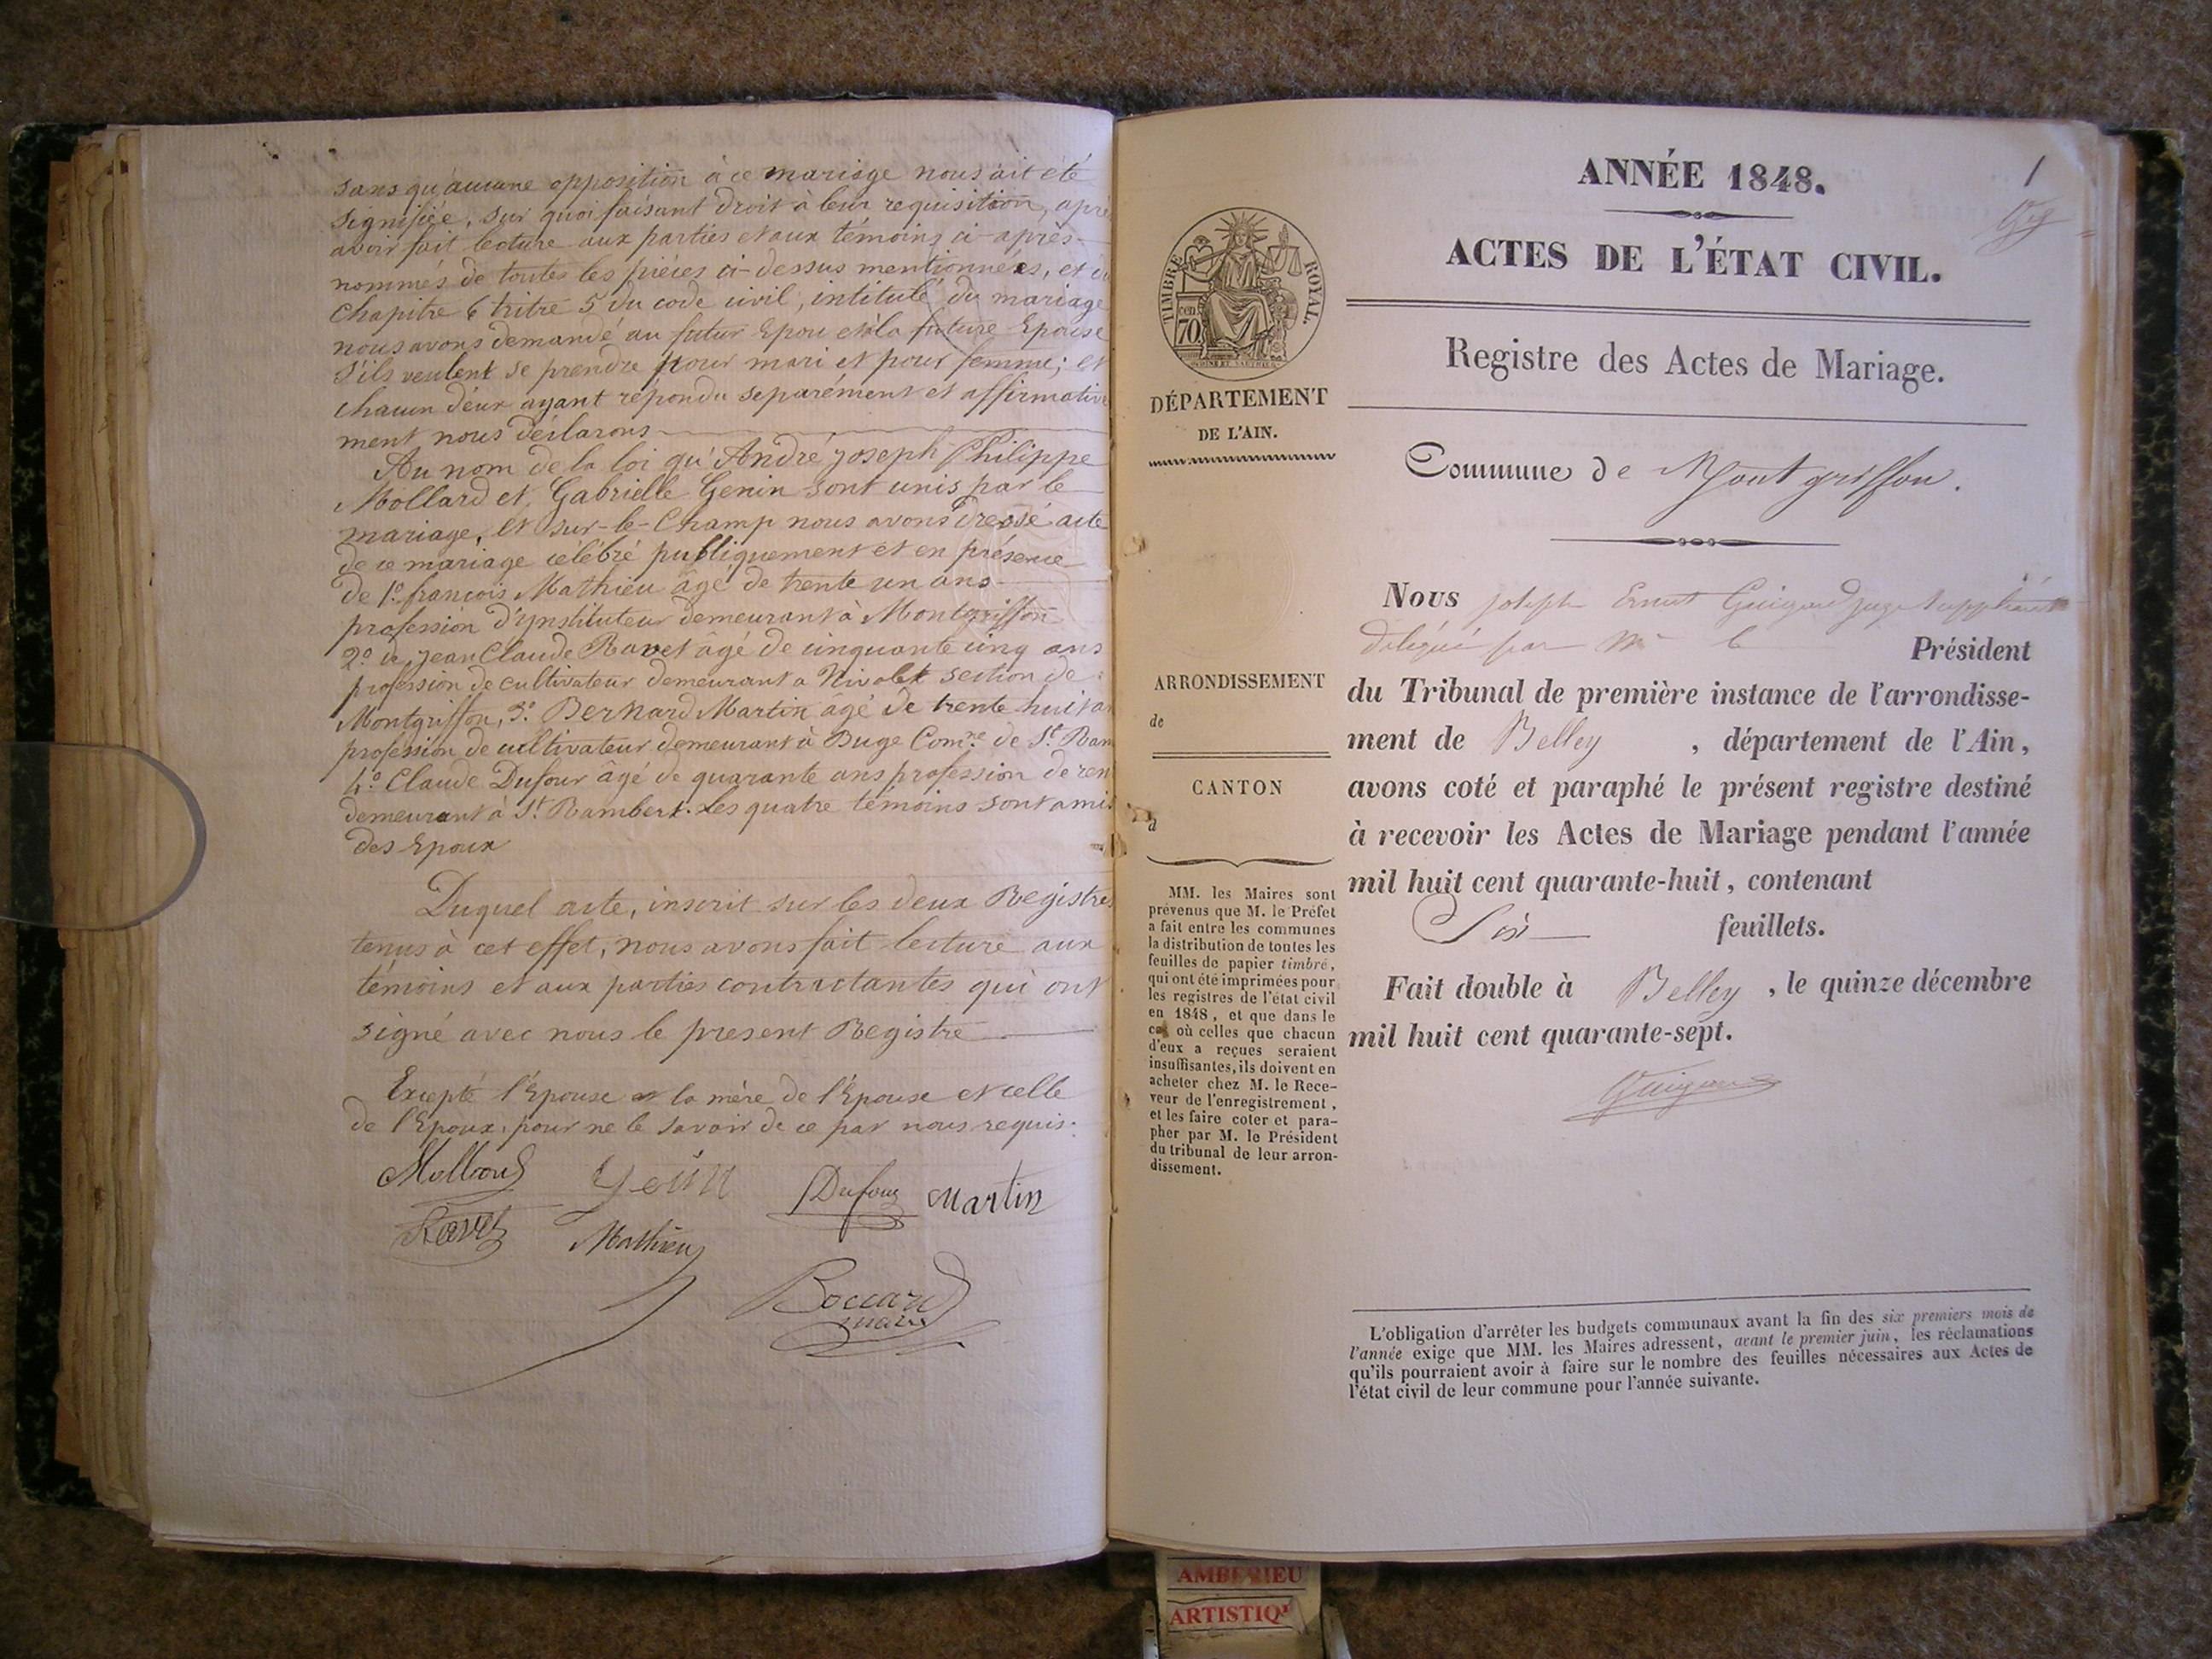 sans qu'aucune opposition à ce mariage nous ait été
signifiée, sur quoi faisant droit à leur requisition, apre
avoir fait lecture aux parties et aux témoins ci-après-
nommés de toutes les pièces ci-dessus mentionnées, et du
chapitre 6 tritre 5 du code civil, intitulé du mariage
nous avons demandé au futur Epou et à la future Epouse
s'ils veulent se prendre pour mari et pour femme; et
chacun deux ayant répondu separément et affirmative
ment nous déclarons
Au nom de la loi qu'André joseph Philippe
Mollard et Gabrielle Genin sont unis par le
mariage, et sur-le-champ nous avons dressé acte
de ce mariage célébré publiquement et en présence
de 1° francois Mathieu âgé de trente un ans
profession d'ynstituteur demeurant à Montgriffon
2° de jean Claude Ravet âgé de cinquante cinq ans
profession de cultivateur demeurant a Nivolet section de
Montgriffon, 3° Bernard Martin agé de trente huit an
profession de cultivateur demeurant à Buge Com.ne de St. Ram
4° Claude Dufour âgé de quarante ans profession de ren
demeurant à St. Rambert. Les quatre témoins sont amis
des Epoux
Duquel acte, inscrit sur les deux Registres
tenus à cet effet, nous avons fait lecture aux
témoins et aux parties contractantes qui ont
signé avec nous le present Registre
Excepté l'Epouse et la mère de l'Epouse et celle
de l'Epoux, pour ne le savoir de ce par nous requis.
Mollard Genin Dufour Martin
Ravet Mathieu
Boccard
maire
ANNÉE 1848.
1
ACTES DE L'ÉTAT CIVIL.
TIMBRE ROYAL.
cen
70
DÉPARTEMENT
DE L'AIN.
Registre des Actes de Mariage.
Commune de Montgriffon.
Nous joseph Ernest Guigard juge suppléant
délégué par Mr le Président
du Tribunal de première instance de l'arrondisse-
ment de Belley, département de l'Ain,
avons coté et paraphé le présent registre destiné
à recevoir les Actes de Mariage pendant l'année
mil huit cent quarante-huit, contenant
Six feuillets.
Fait double à Belley, le quinze décembre
mil huit cent quarante-sept.
Guigard
ARRONDISSEMENT
de
CANTON
d
MM. les Maires sont
prévenus que M. le Préfet
a fait entre les communes
la distribution de toutes les
feuilles de papier timbré,
qui ont été imprimées pour
les registres de l'état civil
en 1848, et que dans le
cas où celles que chacun
d'eux a reçues seraient
insuffisantes, ils doivent en
acheter chez M. le Rece-
veur de l'enregistrement,
et les faire coter et para-
pher par M. le Président
du tribunal de leur arron-
dissement.
L'obligation d'arrêter les budgets communaux avant la fin des six premiers mois de
l'année exige que MM. les Maires adressent, avant le premier juin, les réclamations
qu'ils pourraient avoir à faire sur le nombre des feuilles nécessaires aux Actes de
l'état civil de leur commune pour l'année suivante.
AMBERIEU
ARTISTIQ